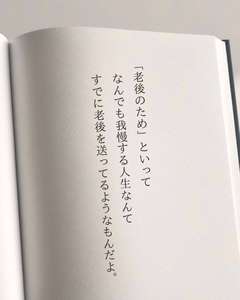 「老後のため」といって
なんでも我慢する人生なんて
すでに老後を送ってるようなもんだよ。